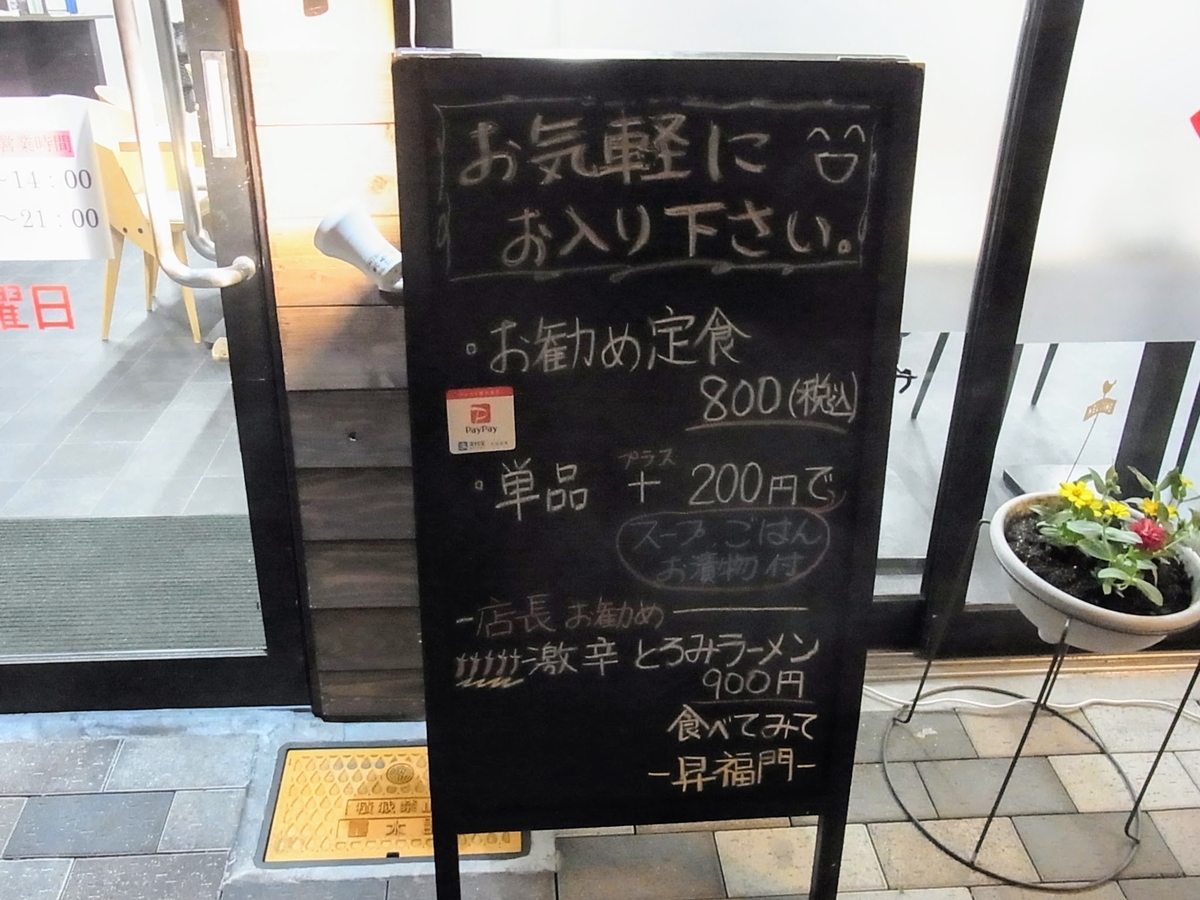 お気軽に
お入り下さい。
・お勧め定食
800(税込)
PayPay
・単品 プラス + 200円で
スープ、ごはん
お漬物付
-店長お勧め
激辛とろみラーメン
900円
食べてみて
-昇福門-
営業時間
~14:00
~21:00
曜日